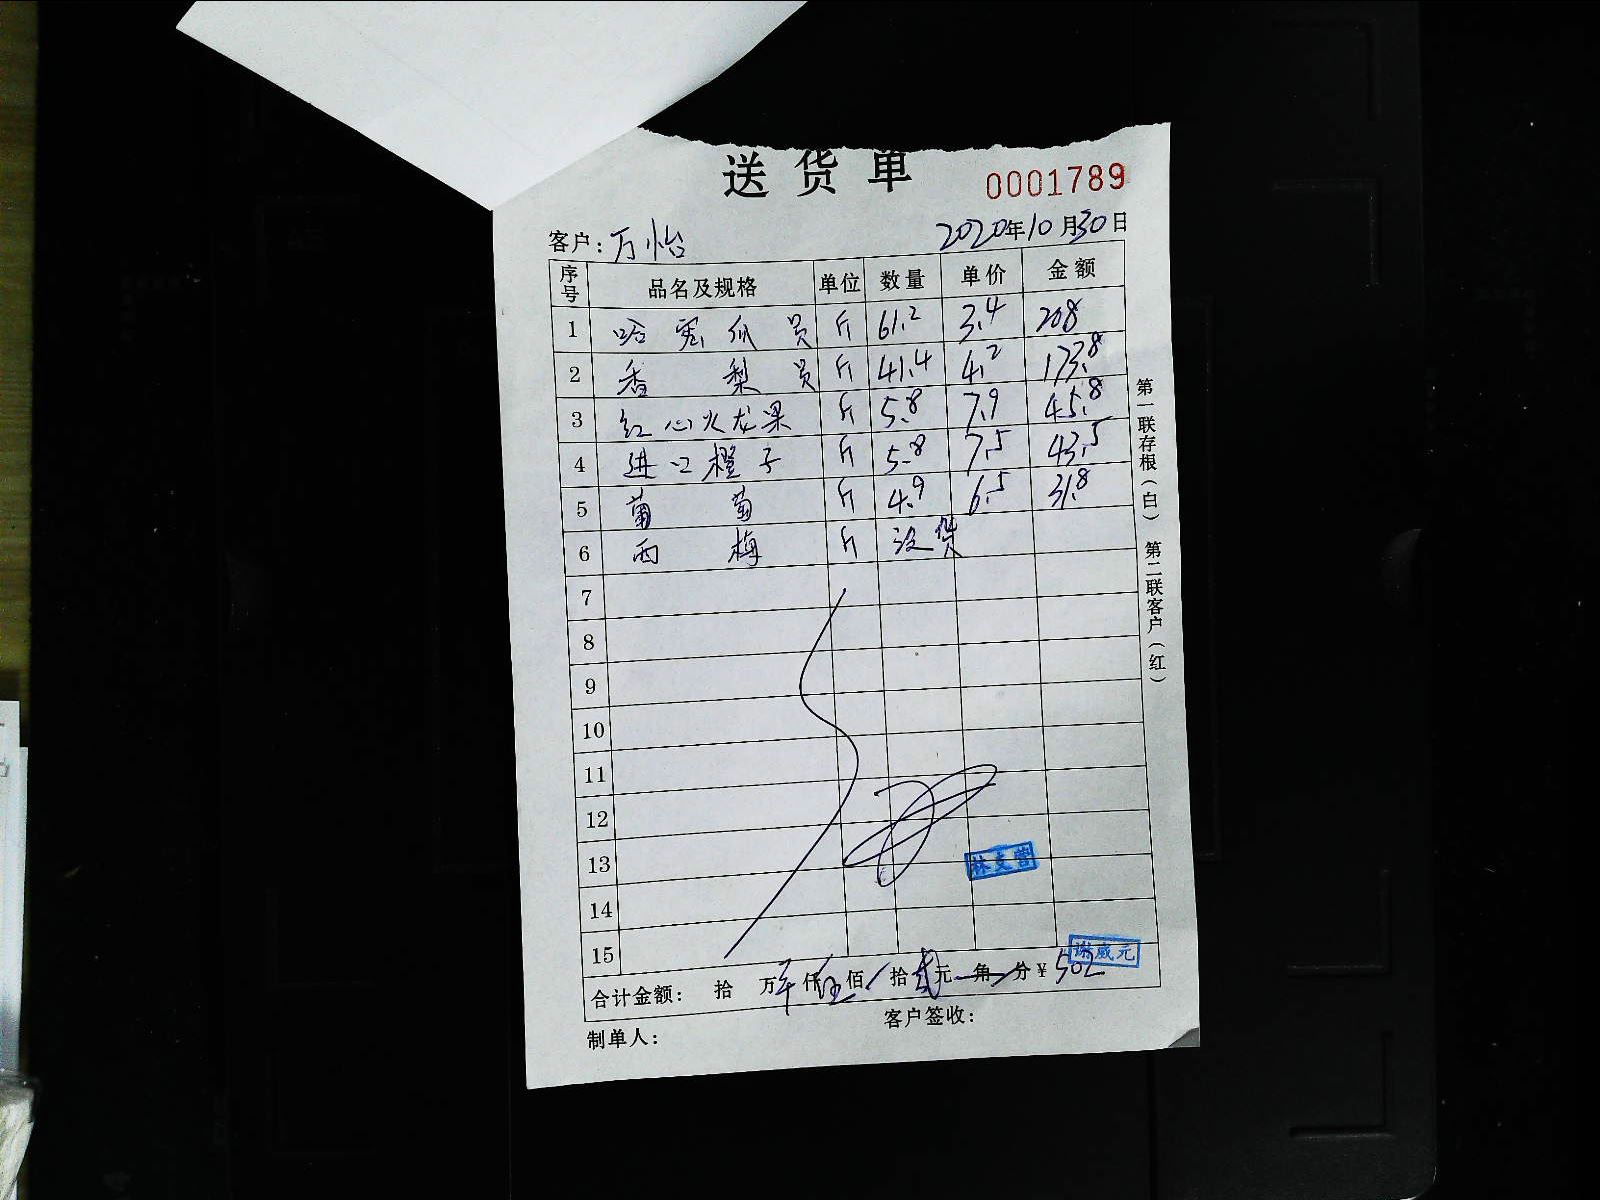 送货单 0001789
客户：万怡 2020年10月30日
序号 品名及规格 单位 数量 单价 金额
1 哈密瓜 员 斤 61.2 3.4 208
2 香梨 员 斤 41.4 4.2 173.8
3 红心火龙果 斤 5.8 7.9 45.8
4 进口橙子 斤 5.8 7.5 43.5
5 葡萄 斤 4.9 6.5 31.8
6 西梅 斤 没货
7
8
9
10
11
12
13
14
15
林 营
谢威元
合计金额： 拾 万 仟 伍 佰 / 拾 贰 元 角 分 ¥ 502
制单人： 客户签收：
第一联存根（白） 第二联客户（红）